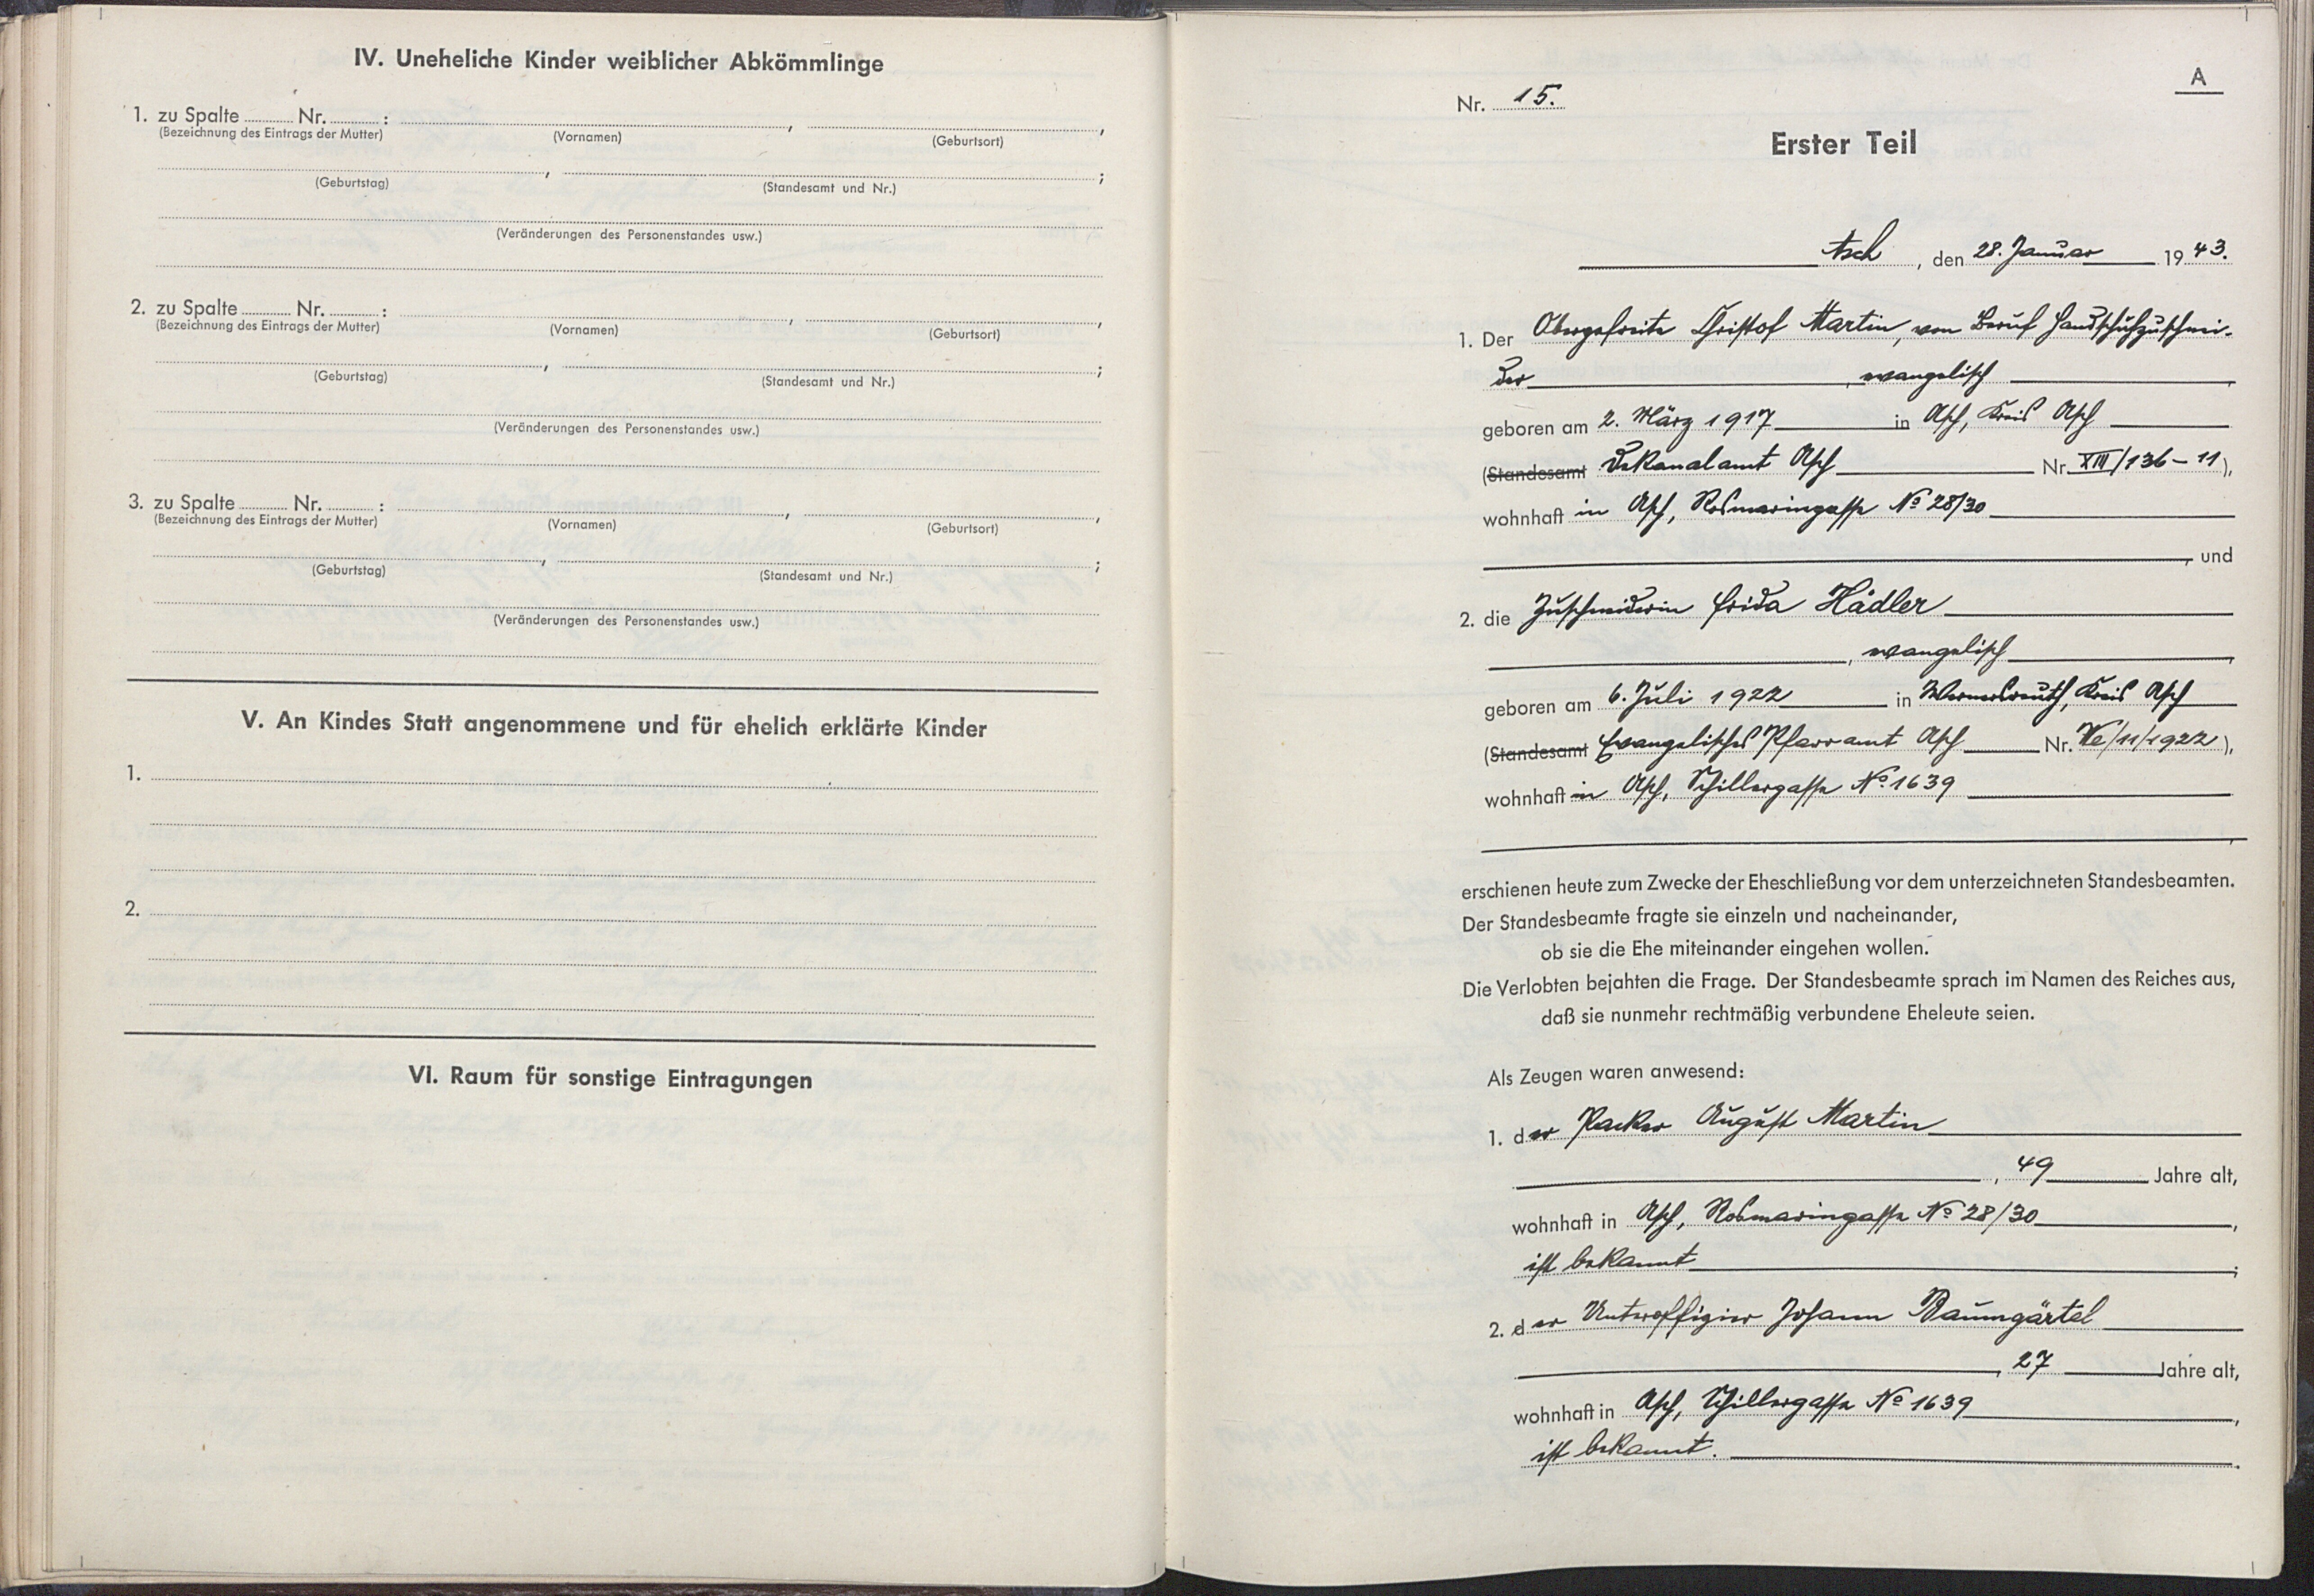 IV. Uneheliche Kinder weiblicher Abkömmlinge
1. zu Spalte ........ Nr. ........ :
(Bezeichnung des Eintrags der Mutter) (Vornamen) (Geburtsort)
(Geburtstag) (Standesamt und Nr.)
(Veränderungen des Personenstandes usw.)
2. zu Spalte ........ Nr. ........ :
(Bezeichnung des Eintrags der Mutter) (Vornamen) (Geburtsort)
(Geburtstag) (Standesamt und Nr.)
(Veränderungen des Personenstandes usw.)
3. zu Spalte ........ Nr. ........ :
(Bezeichnung des Eintrags der Mutter) (Vornamen) (Geburtsort)
(Geburtstag) (Standesamt und Nr.)
(Veränderungen des Personenstandes usw.)
V. An Kindes Statt angenommene und für ehelich erklärte Kinder
1.
2.
VI. Raum für sonstige Eintragungen
A
Nr. 15.
Erster Teil
Asch, den 28. Januar 1943.
1. Der Obergefreite Christof Martin, von Beruf Handschuhzuschnei-
der, evangelisch,
geboren am 2. März 1917 in Asch, Kreis Asch
(Standesamt Dekanalamt Asch Nr. XIII/136-11),
wohnhaft in Asch, Rosmaringasse No 28/30
, und
2. die Zuschneiderin Frida Hädler
, evangelisch,
geboren am 6. Juli 1922 in Wernersreuth, Kreis Asch
(Standesamt Evangelisches Pfarramt Asch Nr. We/11/1922),
wohnhaft in Asch, Schillergasse No 1639
,
erschienen heute zum Zwecke der Eheschließung vor dem unterzeichneten Standesbeamten.
Der Standesbeamte fragte sie einzeln und nacheinander,
ob sie die Ehe miteinander eingehen wollen.
Die Verlobten bejahten die Frage. Der Standesbeamte sprach im Namen des Reiches aus,
daß sie nunmehr rechtmäßig verbundene Eheleute seien.
Als Zeugen waren anwesend:
1. der Packer August Martin
, 49 Jahre alt,
wohnhaft in Asch, Rosmaringasse No 28/30,
ist bekannt;
2. der Unteroffizier Johann Baumgärtel
, 27 Jahre alt,
wohnhaft in Asch, Schillergasse No 1639,
ist bekannt.